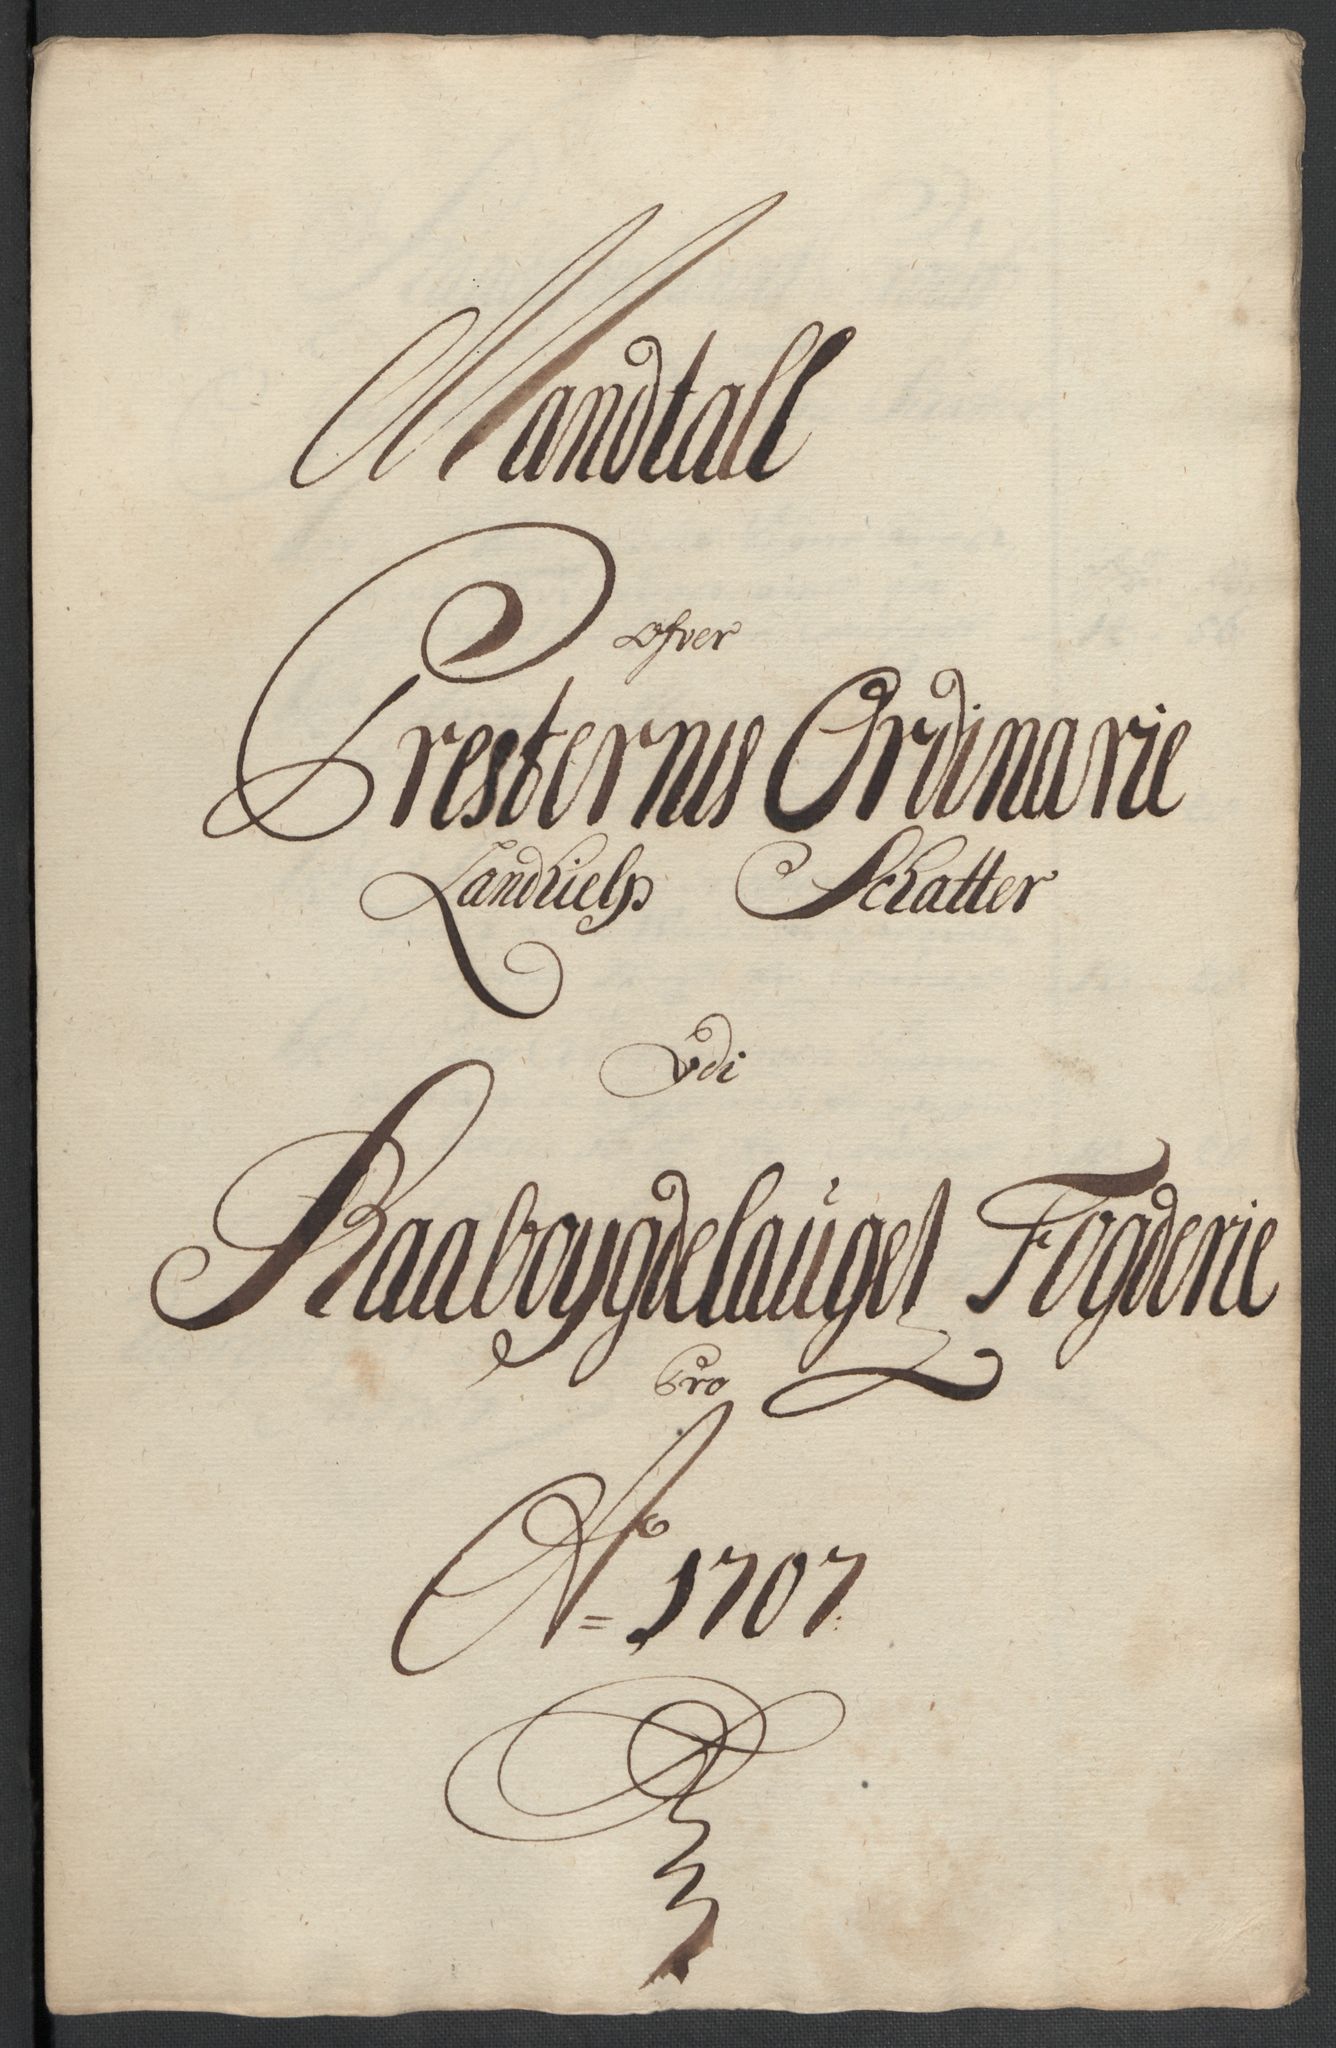 Mandtall
ofver
Presternis Ordinarie
Landhielps Schatter
Vdi
Raaboygdelauget Fogderie
Pro
Ao = 1707